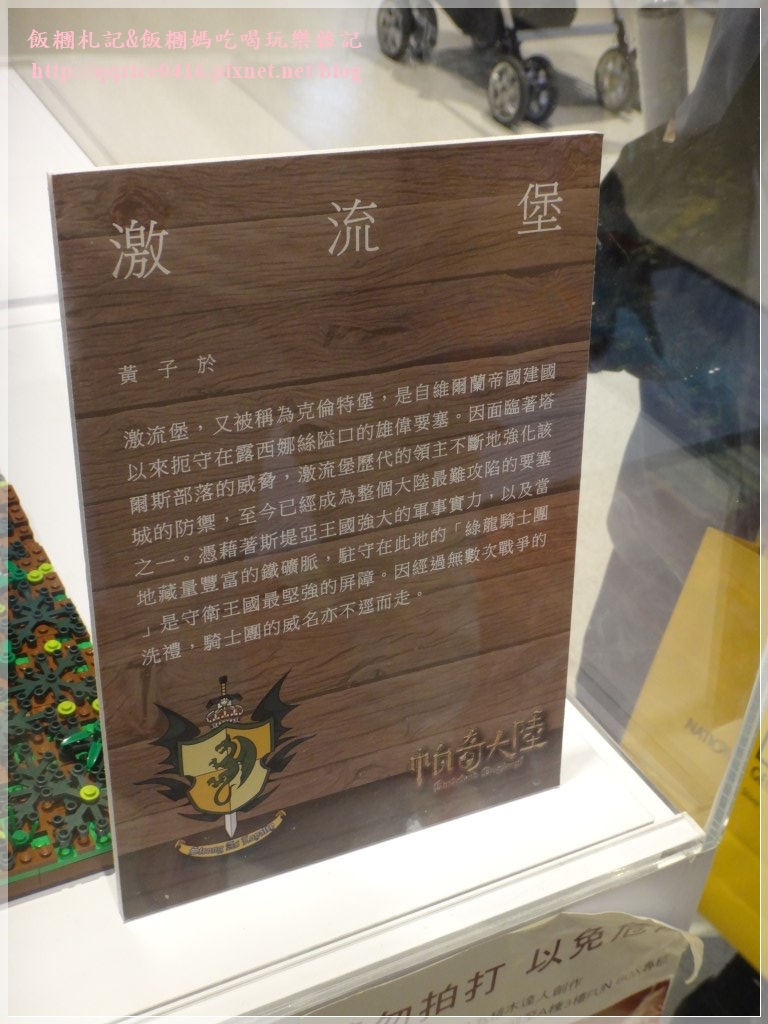 飯糰札記&飯糰媽吃喝玩樂雜記
激流堡
黃子於
激流堡，又被稱為克倫特堡，是自維爾蘭帝國建國
以來扼守在露西娜絲隘口的雄偉要塞。因面臨著塔
爾斯部落的威脅，激流堡歷代的領主不斷地強化該
城的防禦，至今已經成為整個大陸最難攻陷的要塞
之一。憑藉著斯堤亞王國強大的軍事實力，以及當
地藏量豐富的鐵礦脈，駐守在此地的「綠龍騎士團
」是守衛王國最堅強的屏障。因經過無數次戰爭的
洗禮，騎士團的威名亦不逕而走。
帕奇大陸
Strong As Legality
勿拍打 以免
木達人創作